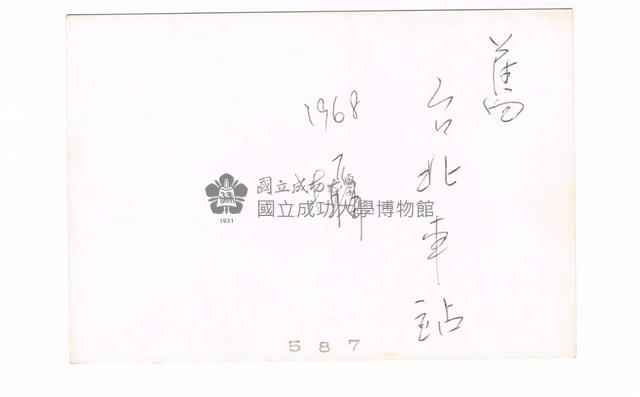 舊
台北車站
1968
攝
國立成功大學
國立成功大學博物館
1931
587